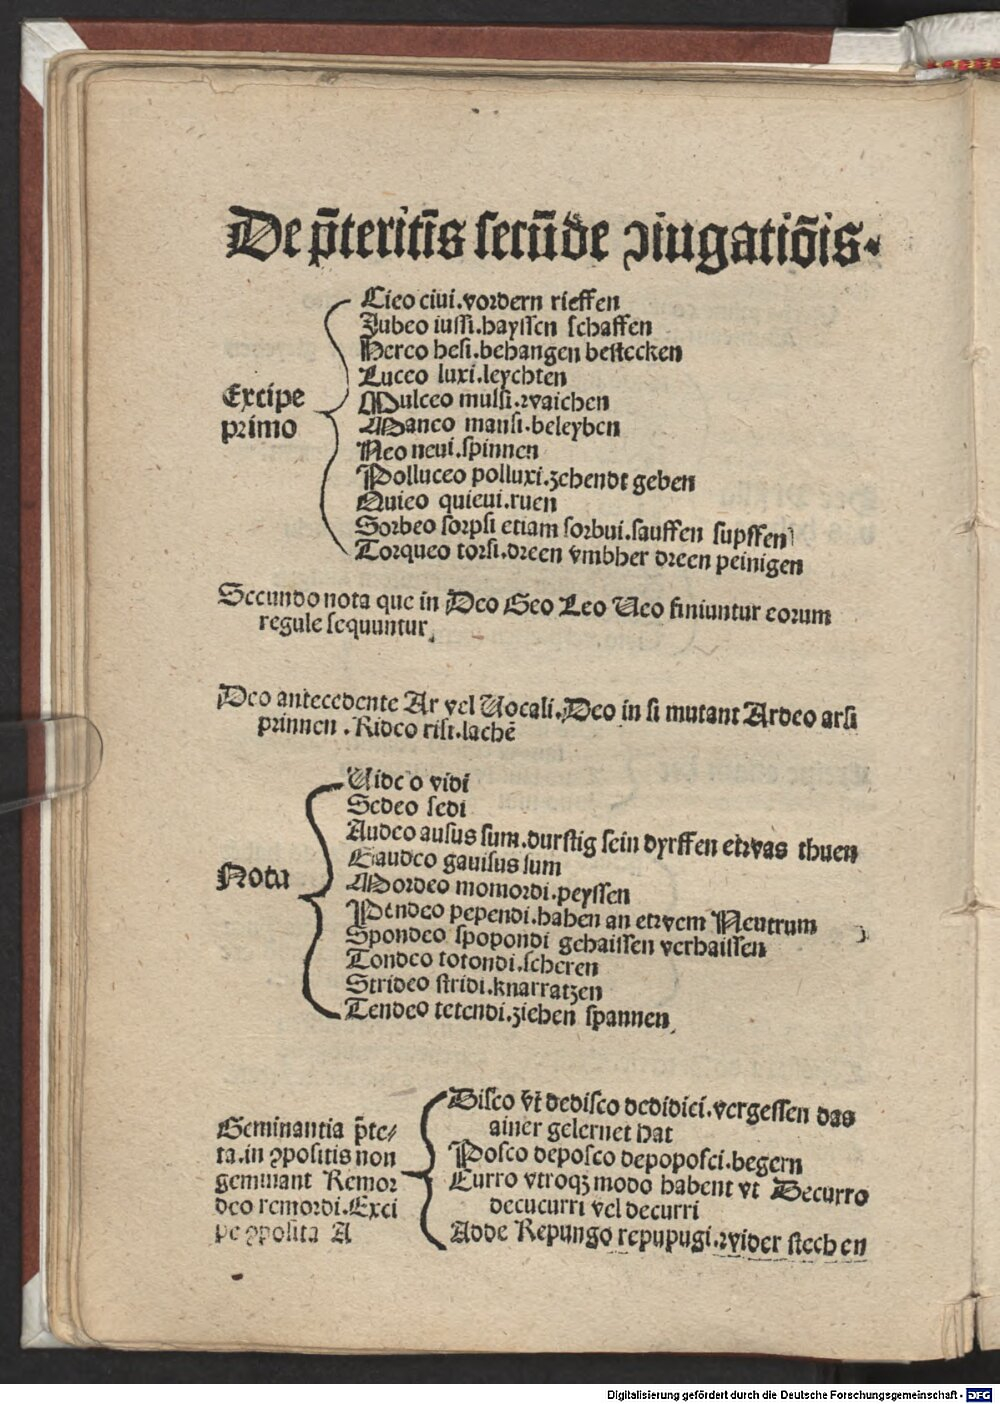 De p̄teritīs secūde ↄiugatiōis.
Cieo ciui.vordern rieffen
Jubeo iussi.hayssen schaffen
Hereo hesi.behangen bestecken
Luceo luxi.leychten
Excipe
primo
Mulceo mulsi.waichen
Maneo mansi.beleyben
Neo neui.spinnen
Polluceo polluxi.zehendt geben
Quieo quieui.ruen
Sorbeo sorpsi etiam sorbui.sauffen supffen
Torqueo torsi.dreen vmbher dreen peinigen
Secundo nota que in Deo Geo Leo Ueo finiuntur eorum
regule sequuntur.
Deo antecedente Ar vel Uocali.Deo in si mutant Ardeo arsi
prinnen.Rideo risi.lachē
Nota
Uideo vidi
Sedeo sedi
Audeo ausus sum.durstig sein dyrffen etwas thuen
Gaudeo gauisus sum
Mordeo momordi.peyssen
Pendeo pependi.haben an etwem Neutrum
Spondeo spopondi gehaissen verhaissen
Tondeo totondi.scheren
Strideo stridi.knarratzen
Tendeo tetendi.ziehen spannen.
Geminantia p̄te/
ta.in ꝯpositis non
geminant Remor
deo remordi.Exci
pe ꝯposita A
Disco vt dedisco dedidici.vergessen das
ainer gelernet hat
Posco deposco depoposci.begern
Curro vtroqꝫ modo habent vt Decurro
decucurri vel decurri
Adde Repungo repupugi.wider stechen
Digitalisierung gefördert durch die Deutsche Forschungsgemeinschaft - DFG